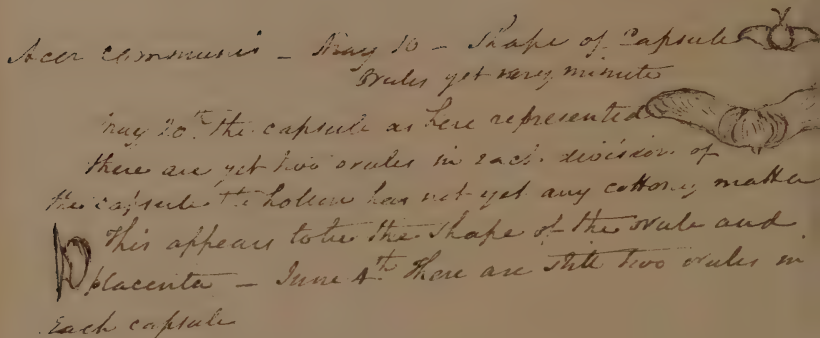 Acer communis – May 10 – Shape of Capsule
ovules yet very minute
May 20th the capsule as here represented
there are yet two ovules in each division of
the capsule the hollow has not yet any cottony matter
This appears to be the shape of the ovule and
placenta – June 4th There are still two ovules in
each capsule